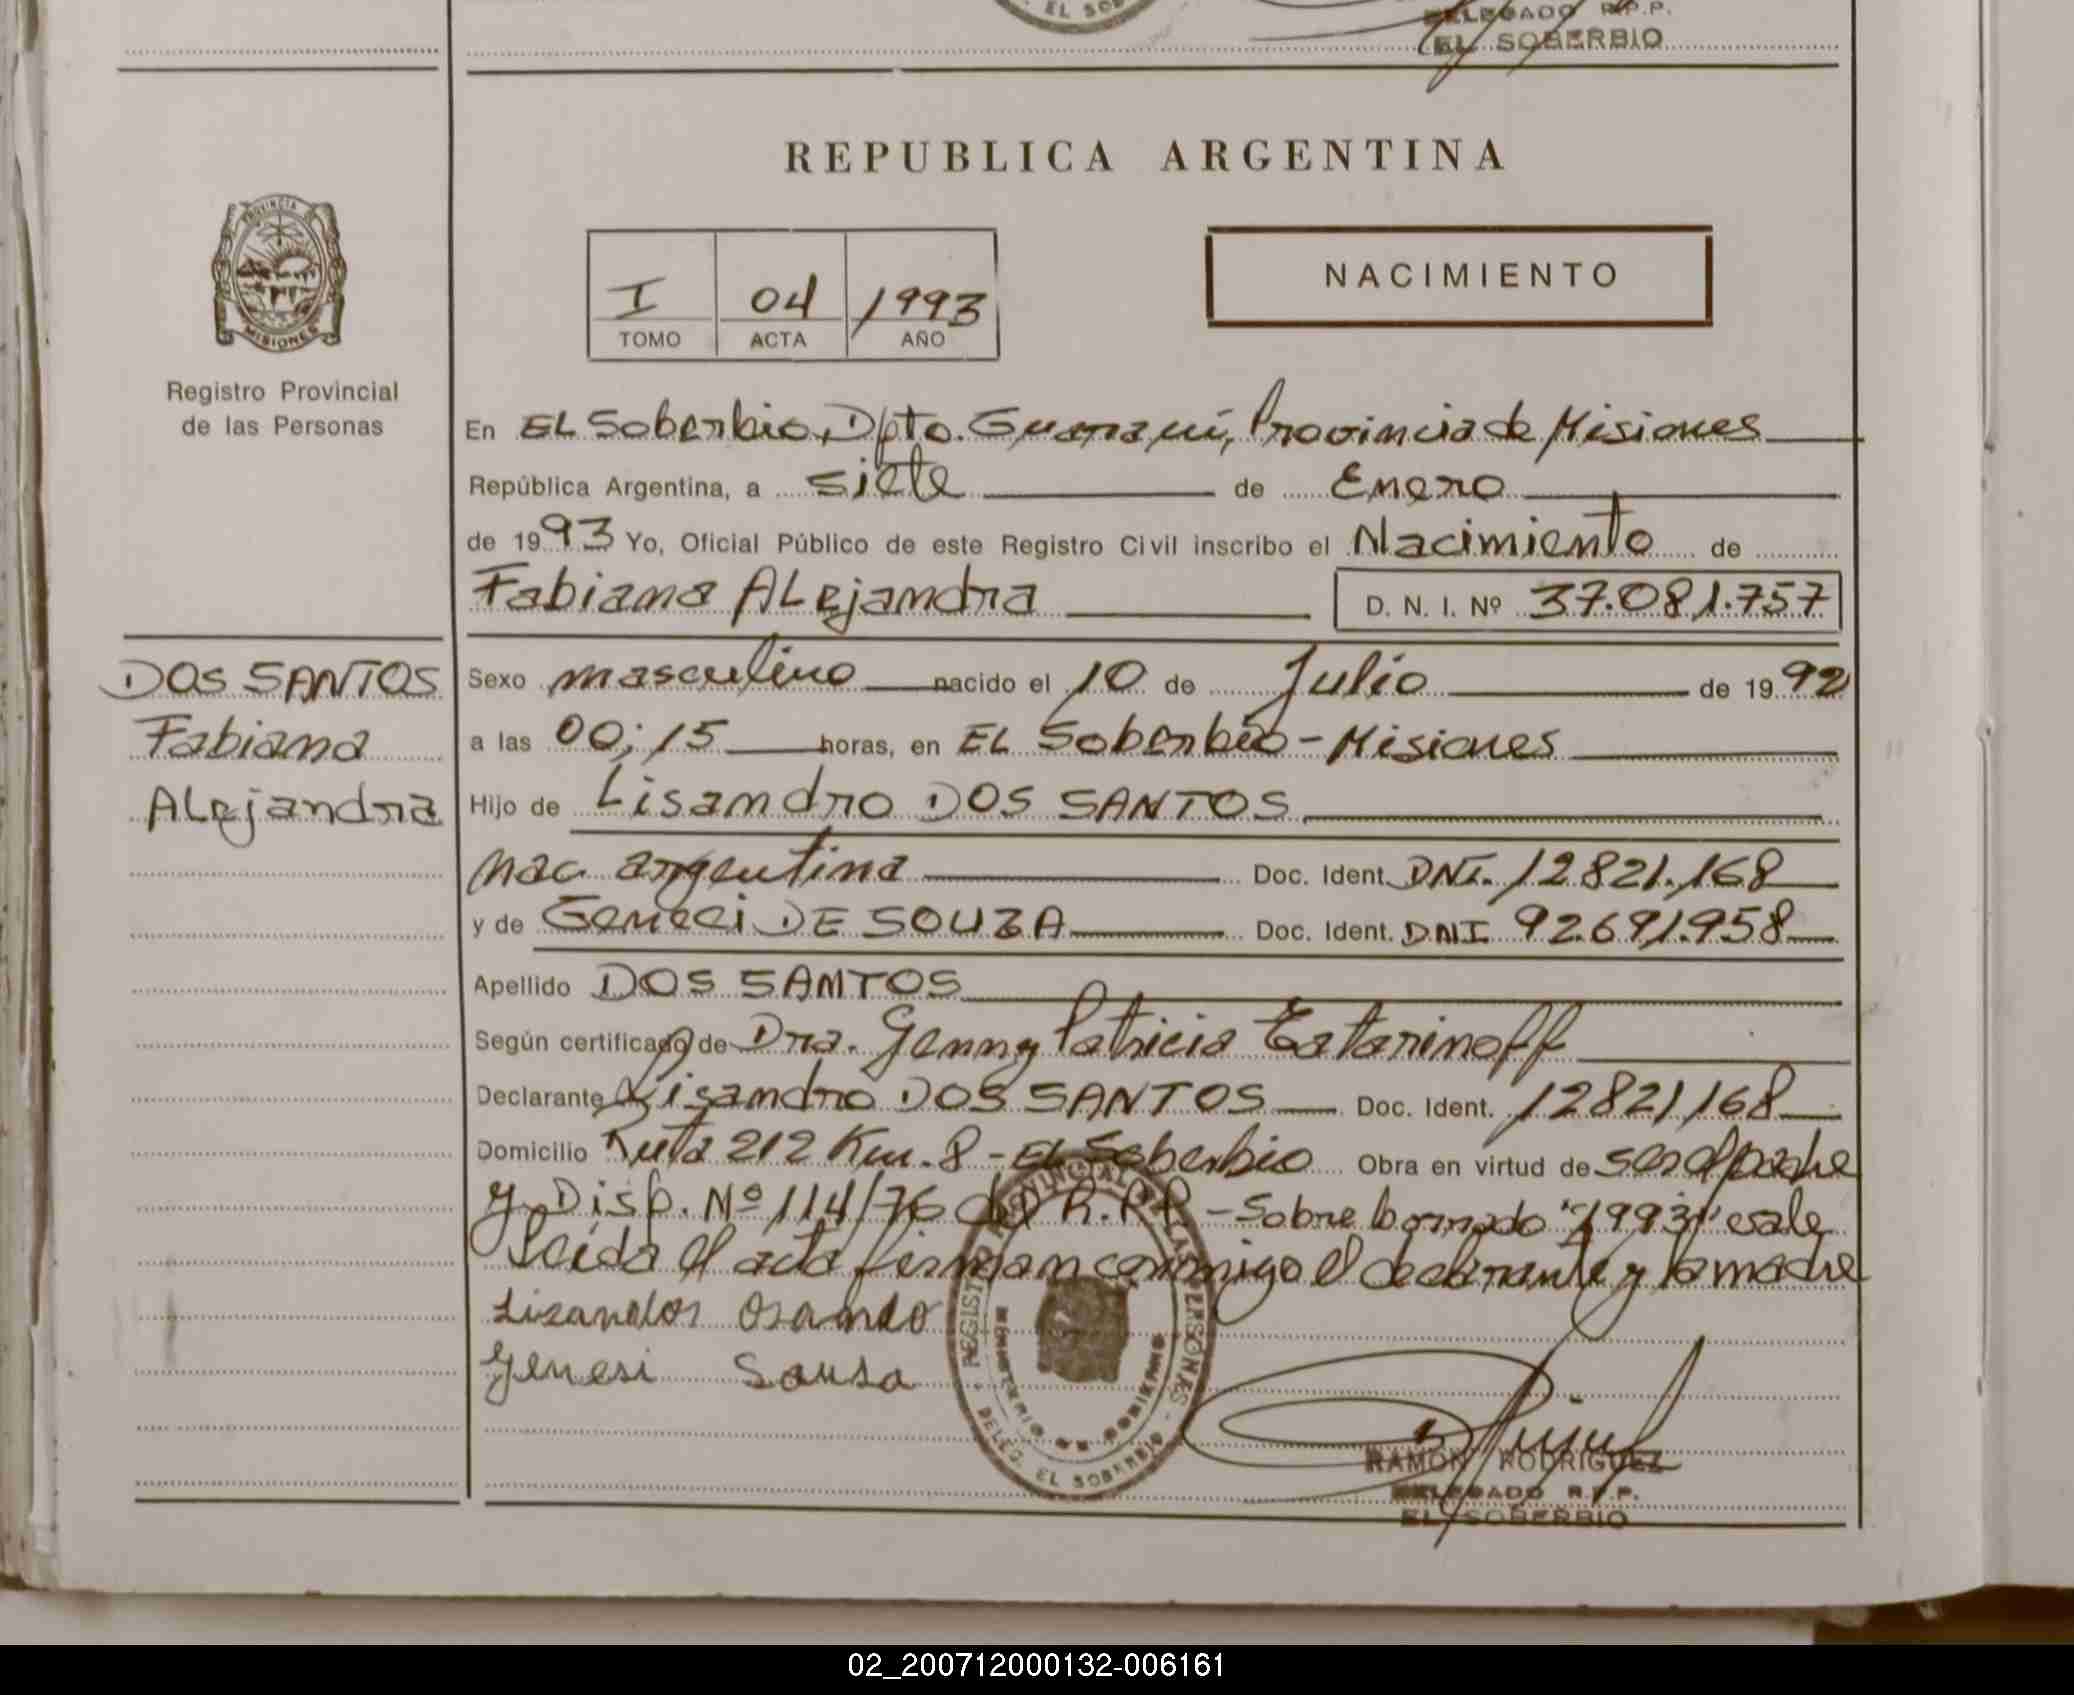 EL SOB
DELEGADO R.P.P.
EL SOBERBIO
REPUBLICA ARGENTINA
PROVINCIA
MISIONES
I 04 1993
TOMO ACTA AÑO
NACIMIENTO
Registro Provincial
de las Personas
En EL Soberbio, Dpto. Guaraní, Provincia de Misiones
República Argentina, a siete de Enero
de 1993 Yo, Oficial Público de este Registro Civil inscribo el Nacimiento de
Fabiana ALejandra D. N. I. Nº 37.081.757
DOS SANTOS
Fabiana
ALejandra
Sexo masculino nacido el 10 de Julio de 1992
a las 00;15 horas, en EL Soberbio - Misiones
Hijo de Lisandro DOS SANTOS
nac. argentina Doc. Ident. DNI. 12821.168
y de Geneci DE SOUZA Doc. Ident. DNI 92.691.958
Apellido DOS SANTOS
Según certificado de Dra. Genny Patricia
Declarante Lisandro DOS SANTOS Doc. Ident. 12821168
Domicilio Ruta 212 Km. 8 - EL Soberbio Obra en virtud de ser el padre
y Disp. Nº 114/76 del R.P.P. - Sobre borrado "1993" vale
Leída el acta firman conmigo el declarante y la madre
Lizandos
Genesi Sousa
REGISTRO PROVINCIAL DE LAS PERSONAS
MINISTERIO DE GOBIERNO
DELEG. EL SOBERBIO
RAMON RODRIGUEZ
DELEGADO R.P.P.
EL SOBERBIO
02_200712000132-006161